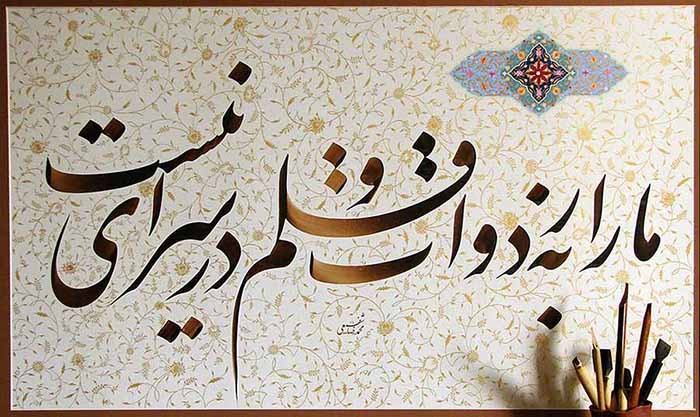 ما را به ز دوات و قلم در سرای نیست